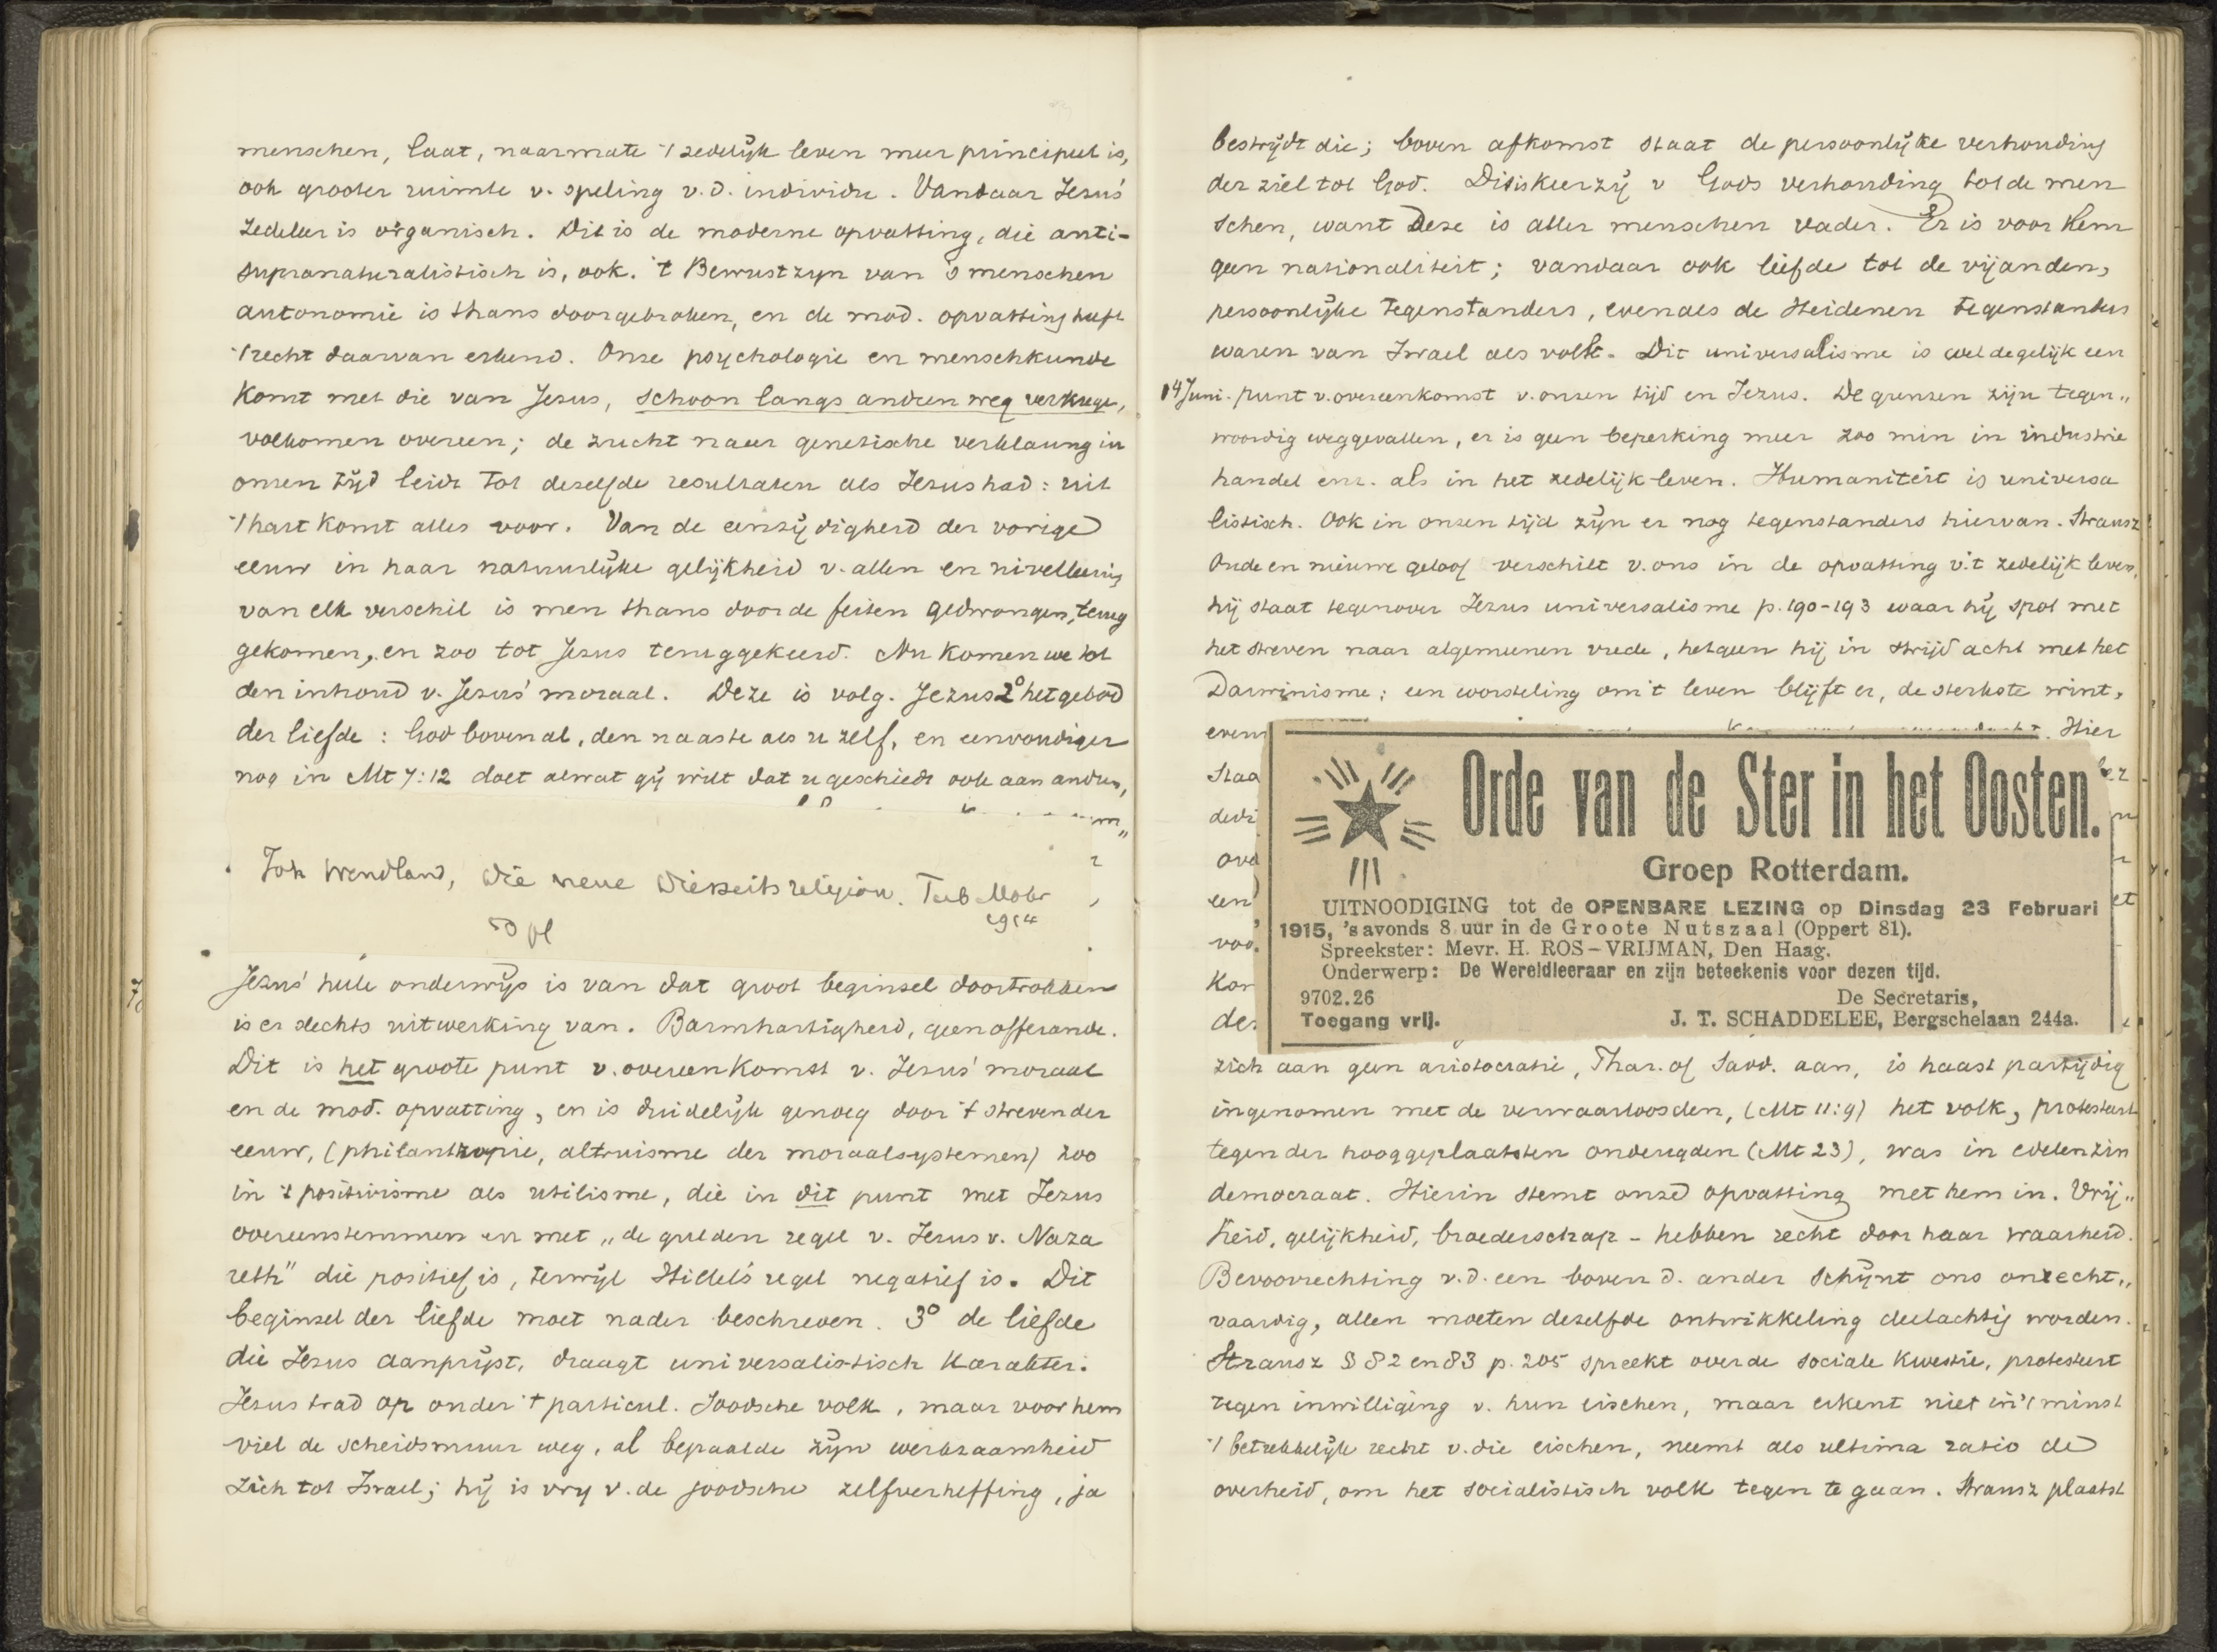 menschen, laat, naarmate 't zedelijk leven meer principieel is,
ook grooter ruimte v. speling v.d. individu. Vandaar Jezus'
zedeleer is organisch. Dit is de moderne opvatting, die anti-
supranaturalistisch is, ook. 't Bewustzyn van 's menschen
autonomie is thans doorgebroken, en de mod. opvatting heeft
't recht daarvan erkend. Onze psychologie en menschkunde
komt met die van Jezus, schoon langs andren weg verkregen,
volkomen overeen; de zucht naar genetische verklaring in
onzen tijd leidt tot dezelfde resultaten als Jezus had: uit
't hart komt alles voor. Van de eenzijdigheid der vorige
eeuw in haar natuurlijke gelijkheid v. allen en nivelleering
van elk verschil is men thans door de feiten gedwongen, terug
gekomen, en zoo tot Jezus teruggekeerd. Nu komen we tot
den inhoud v. Jezus' moraal. Deze is volg. Jezus 2° het gebod
der liefde: God bovenal, den naaste als u zelf, en eenvoudiger
nog in Mt 7:12 doet alwat gij wilt dat u geschiedt ook aan andren,
Joh Wendland, Die neue Diesseitsreligion. Tub Mohr
1914
50 pf
Jezus' heele onderwijs is van dat groot beginsel doortrokken
is er slechts uitwerking van. Barmhartigheid, geen offerande.
Dit is het groote punt v. overeenkomst v. Jezus' moraal
en de mod. opvatting, en is duidelijk genoeg door 't streven der
eeuw, (philanthropie, altruisme der moraalsystemen) zoo
in 't positivisme als utilisme, die in dit punt met Jezus
overeenstemmen en met „de gulden regel v. Jezus v. Naza
reth" die positief is, terwijl Hillel's regel negatief is. Dit
beginsel der liefde moet nader beschreven. 3° de liefde
die Jezus aanprijst, draagt universalistisch karakter.
Jezus trad op onder 't particul. Joodsche volk, maar voor hem
viel de scheidsmuur weg, al bepaalde zijn werkzaamheid
zich tot Israel; hij is vry v. de joodsche zelfverheffing, ja
bestrijdt die; boven afkomst staat de persoonlijke verhouding
der ziel tot God. Dit is keerzij v Gods verhouding tot de men
schen, want Deze is aller menschen vader. Er is voor Hem
geen nationaliteit; vandaar ook liefde tot de vijanden,
persoonlijke tegenstanders, evenals de Heidenen tegenstanders
waren van Israel als volk. Dit universalisme is wel degelijk een
14 Juni. punt v. overeenkomst v. onzen tijd en Jezus. De grenzen zijn tegen„
woordig weggevallen, er is geen beperking meer zoo min in industrie
handel enz. als in het zedelijk leven. Humaniteit is universa
listisch. Ook in onzen tijd zijn er nog tegenstanders hiervan. Strausz
Oude en nieuwe geloof verschilt v. ons in de opvatting v. 't zedelijk leven,
hij staat tegenover Jezus universalisme p. 190-193 waar hij spot met
het streven naar algemeenen vrede, hetgeen hij in strijd acht met het
Darwinisme; een worsteling om 't leven blijft er, de sterkste wint,
Hier
Orde van de Ster in het Oosten.
Groep Rotterdam.
UITNOODIGING tot de OPENBARE LEZING op Dinsdag 23 Februari
1915, 's avonds 8 uur in de Groote Nutszaal (Oppert 81).
Spreekster: Mevr. H. ROS-VRIJMAN, Den Haag.
Onderwerp: De Wereldleeraar en zijn beteekenis voor dezen tijd.
9702.26 De Secretaris,
Toegang vrij. J. T. SCHADDELEE, Bergschelaan 244a.
zich aan geen aristocratie, Phar. of Sadd. aan, is haast partijdig
ingenomen met de verwaarloosden, (Mt 11:9) het volk, protesteert
tegen der hooggeplaatsten ondeugden (Mt 23), was in edelen zin
democraat. Hierin stemt onze opvatting met hem in. Vrij„
heid, gelijkheid, broederschap - hebben recht door haar waarheid.
Bevoorrechting v.d. een boven d. ander schijnt ons onrecht„
vaardig, allen moeten dezelfde ontwikkeling deelachtig worden.
Strausz § 82 en 83 p. 205 spreekt over de sociale kwestie, protesteert
tegen inwilliging v. hun eischen, maar erkent niet in 't minst
't betrekkelijk recht v. die eischen, neemt als ultima ratio de
overheid, om het socialistisch volk tegen te gaan. Strausz plaatst